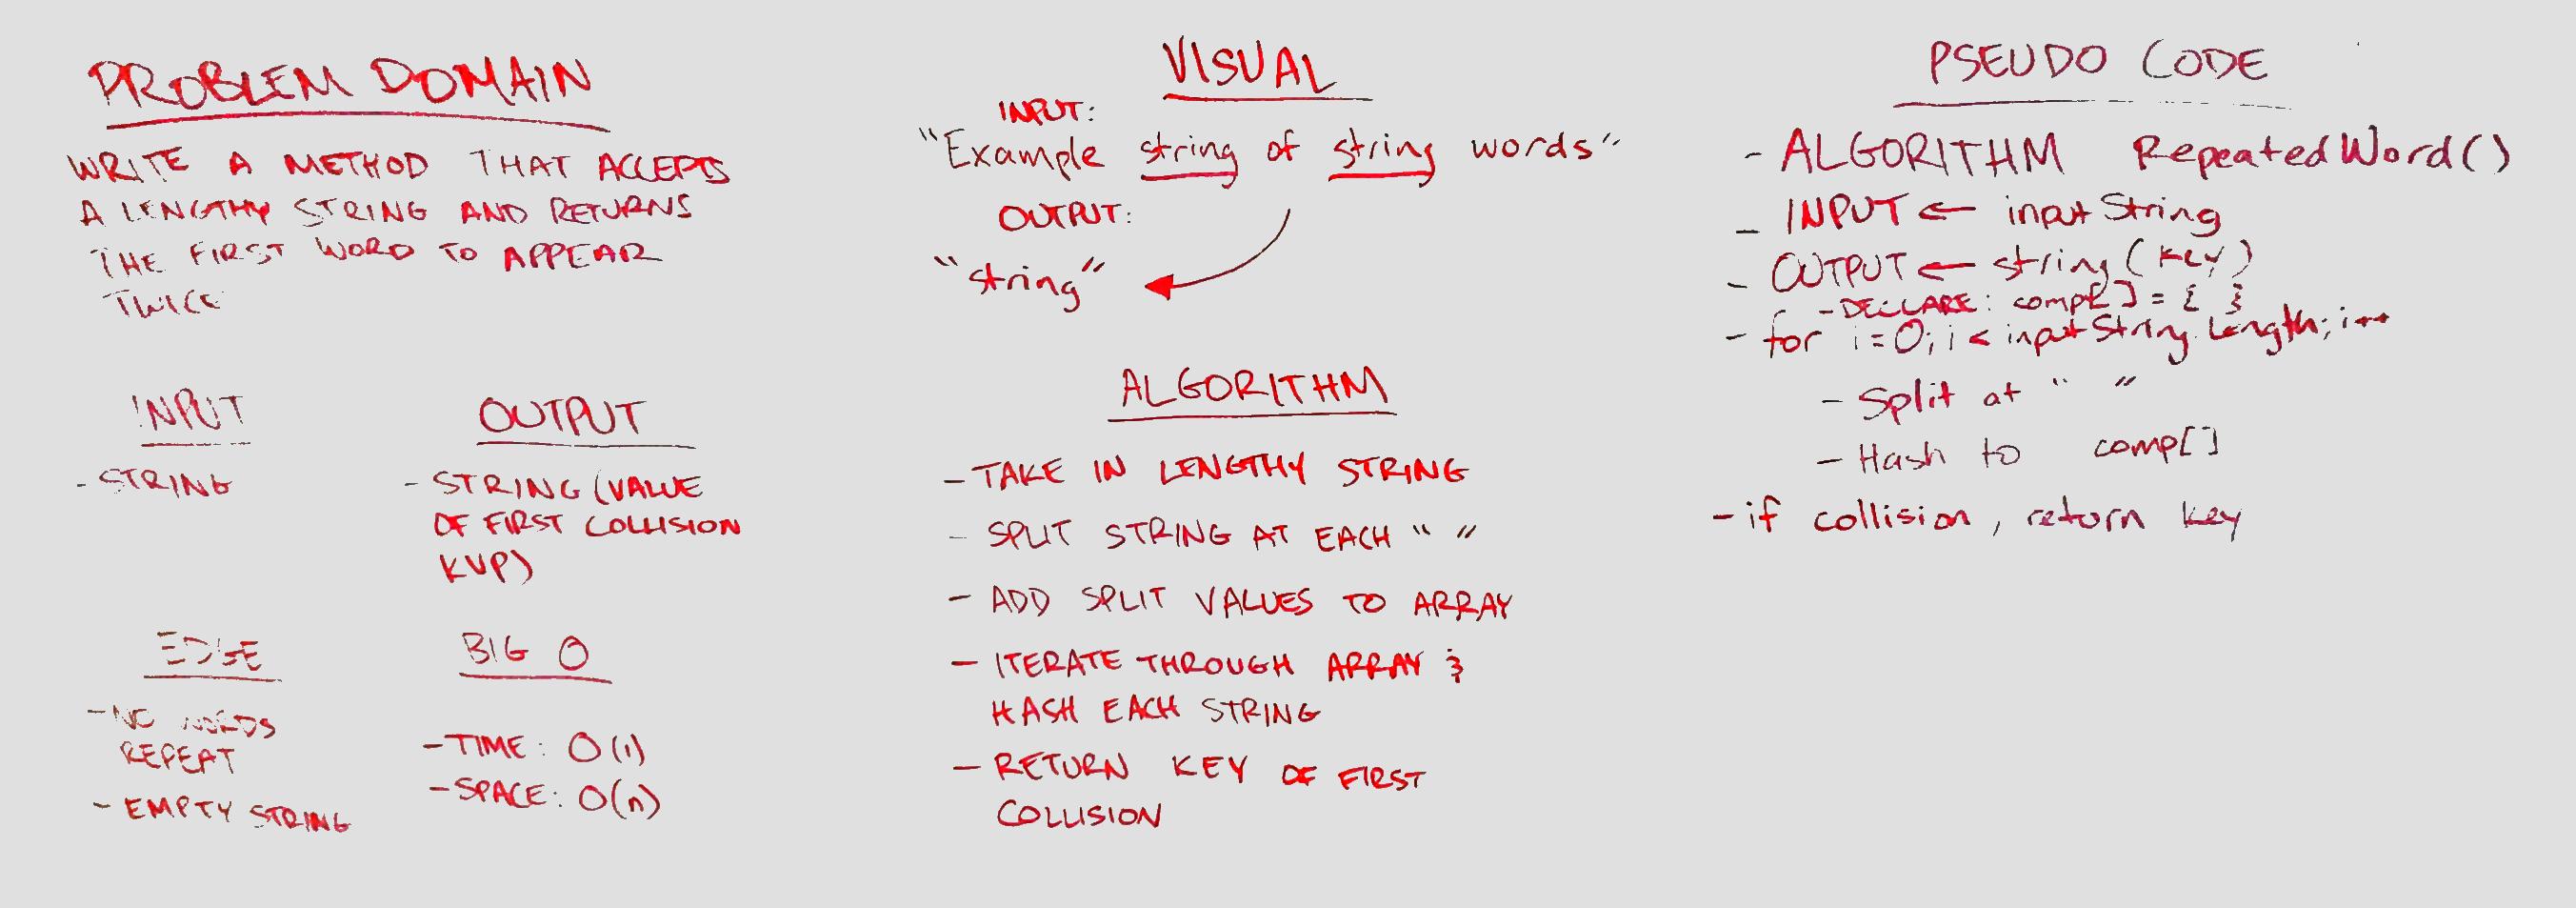 PROBLEM DOMAIN
WRITE A METHOD THAT ACCEPTS
A LENGTHY STRING AND RETURNS
THE FIRST WORD TO APPEAR
TWICE
INPUT
- STRING
OUTPUT
- STRING (VALUE
OF FIRST COLLISION
KVP)
EDGE
- NO WORDS
REPEAT
- EMPTY STRING
BIG O
- TIME: O(1)
- SPACE: O(n)
VISUAL
INPUT:
"Example string of string words"
OUTPUT:
"string"
ALGORITHM
- TAKE IN LENGTHY STRING
- SPLIT STRING AT EACH " "
- ADD SPLIT VALUES TO ARRAY
- ITERATE THROUGH ARRAY &
HASH EACH STRING
- RETURN KEY OF FIRST
COLLISION
PSEUDO CODE
- ALGORITHM RepeatedWord()
- INPUT ← inputString
- OUTPUT ← string (key)
- DECLARE: comp[] = { }
- for i=0; i < inputString.Length; i++
- Split at " "
- Hash to comp[]
- if collision, return key